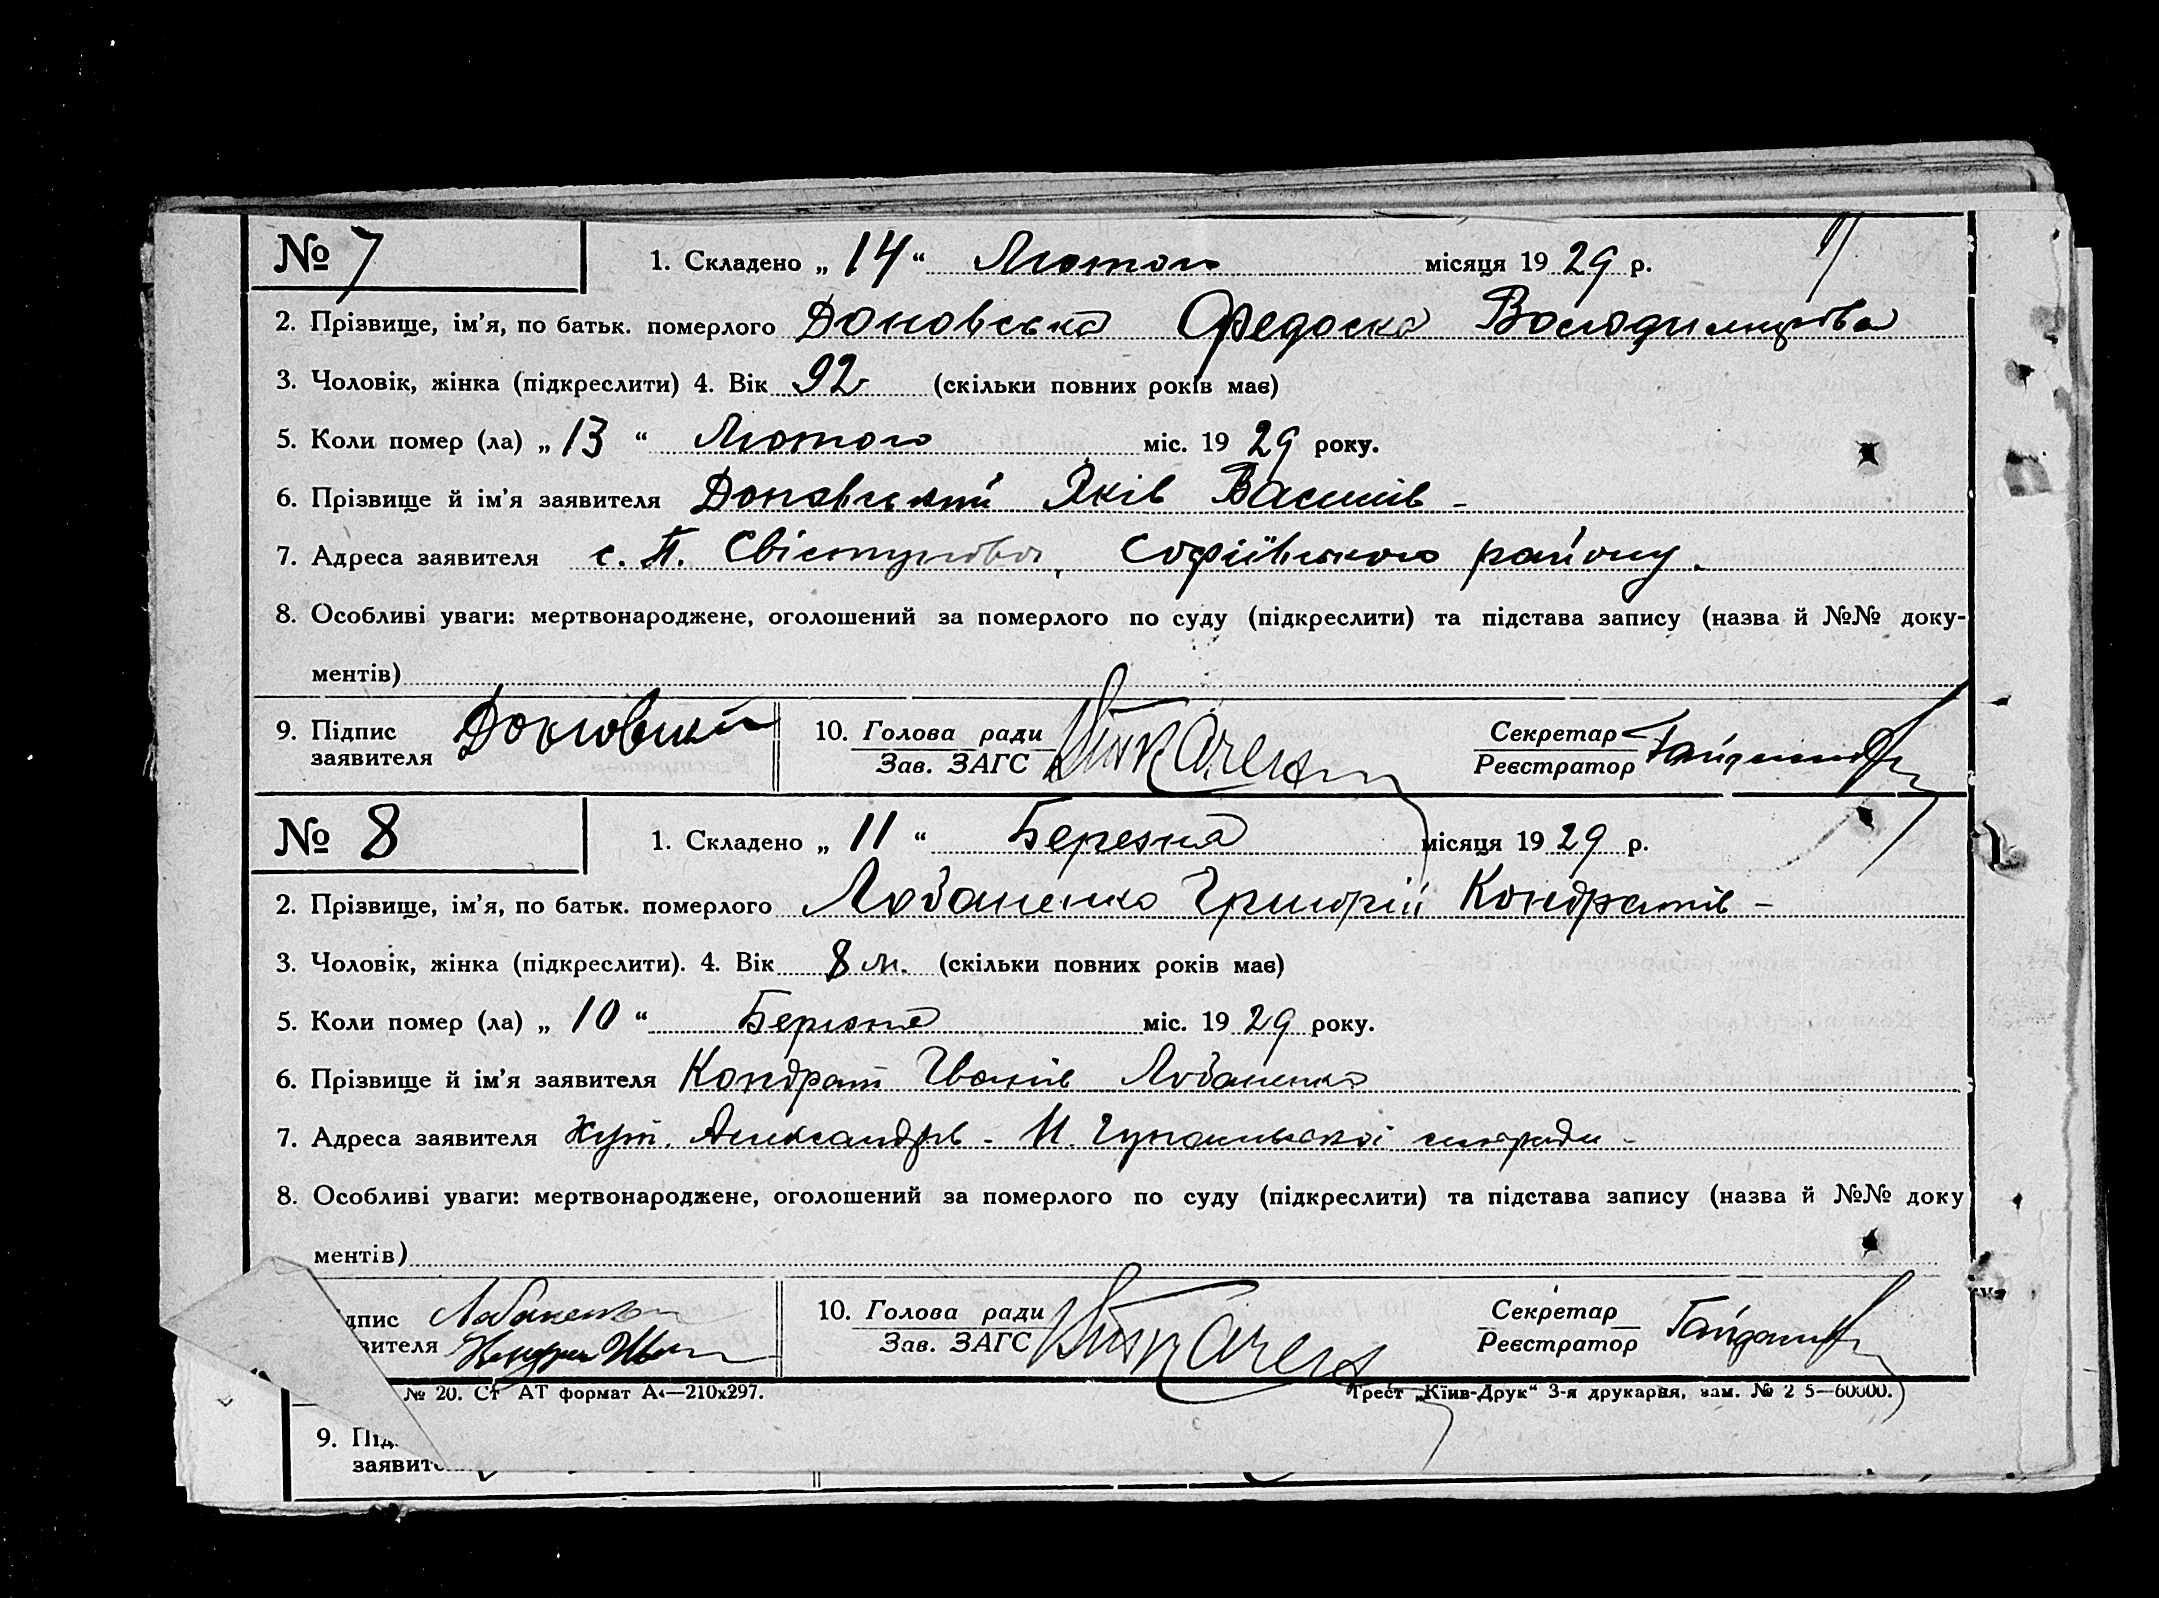 № 7 1. Складено „ 14 “ Лютого місяця 19 29 р.
2. Прізвище, ім’я, по батьк. померлого Доновська Федоска Володимирова
3. Чоловік, жінка (підкреслити) 4. Вік 92 (скільки повних років має)
5. Коли помер (ла) „ 13 “ Лютого міс. 19 29 року.
6. Прізвище й ім’я заявителя Доновський Яків Василів -
7. Адреса заявителя с. П. Свістунова, Софіївського району.
8. Особливі уваги: мертвонароджене, оголошений за померлого по суду (підкреслити) та підстава запису (назва й №№ доку-
ментів)
9. Підпис заявителя Доновський 10. Голова ради Зав. ЗАГС Секретар Реєстратор
№ 8 1. Складено „ 11 “ Березня місяця 19 29 р.
2. Прізвище, ім’я, по батьк. померлого Лобаненко Григорій Кондратів -
3. Чоловік, жінка (підкреслити). 4. Вік 8 м. (скільки повних років має)
5. Коли помер (ла) „ 10 “ Березня міс. 19 29 року.
6. Прізвище й ім’я заявителя Кондрат Іванів Лобаненко
7. Адреса заявителя хут. Александрів - М. сельради -
8. Особливі уваги: мертвонароджене, оголошений за померлого по суду (підкреслити) та підстава запису (назва й №№ доку
ментів)
дпис вителя Лобаненко 10. Голова ради Зав. ЗАГС Секретар Реєстратор
№ 20. Ст АТ формат А4—210х297. Трест „Київ-Друк“ 3-я друкарня, зам. № 2 5—60000.
9. Під
заявит